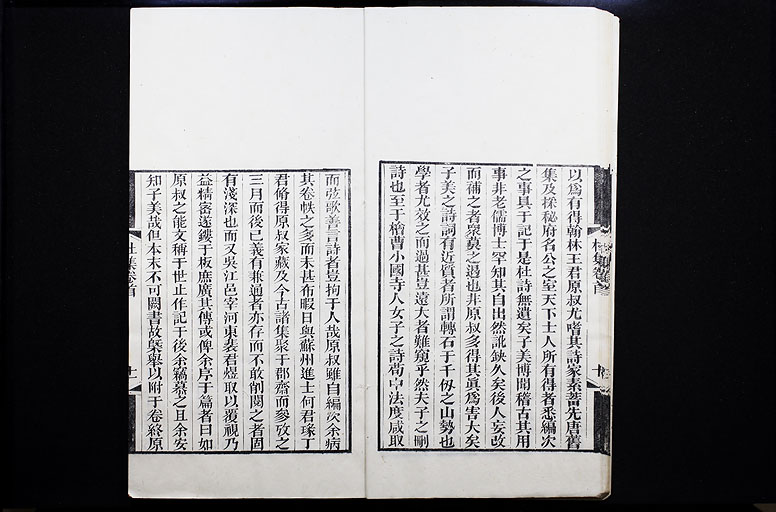 以爲有得翰林王君原叔尤嗜其詩家素蓄先唐舊
集及採秘府名公之室天下士人所有得者悉編次
之事具于記于是杜詩無遺矣子美博聞稽古其用
事非老儒博士罕知其自出然訛缺久矣後人妄改
而補之者衆莫之遏也非原叔多得其眞爲害大矣
子美之詩詞有近質者所謂轉石于千仞之山勢也
學者尤效之而過甚豈遠大者難窺乎然夫子之刪
詩也至于檜曹小國寺人女子之詩苟中法度咸取
而弦歌善言詩者豈拘于人哉原叔雖自編次余病
其卷帙之多而未甚布暇日與蘇州進士何君瑑丁
君脩得原叔家藏及今古諸集聚于郡齋而參攷之
三月而後已義有兼通者亦存而不敢削閱之者固
有淺深也而又吳江邑宰河東裴君煜取以覆視乃
益精密遂鏤于板庶廣其傳或俾余序于篇者曰如
原叔之能文稱于世止作記于後余竊慕之且余安
知子美哉但本末不可闕書故槩舉以附于卷終原
杜集卷首
十一